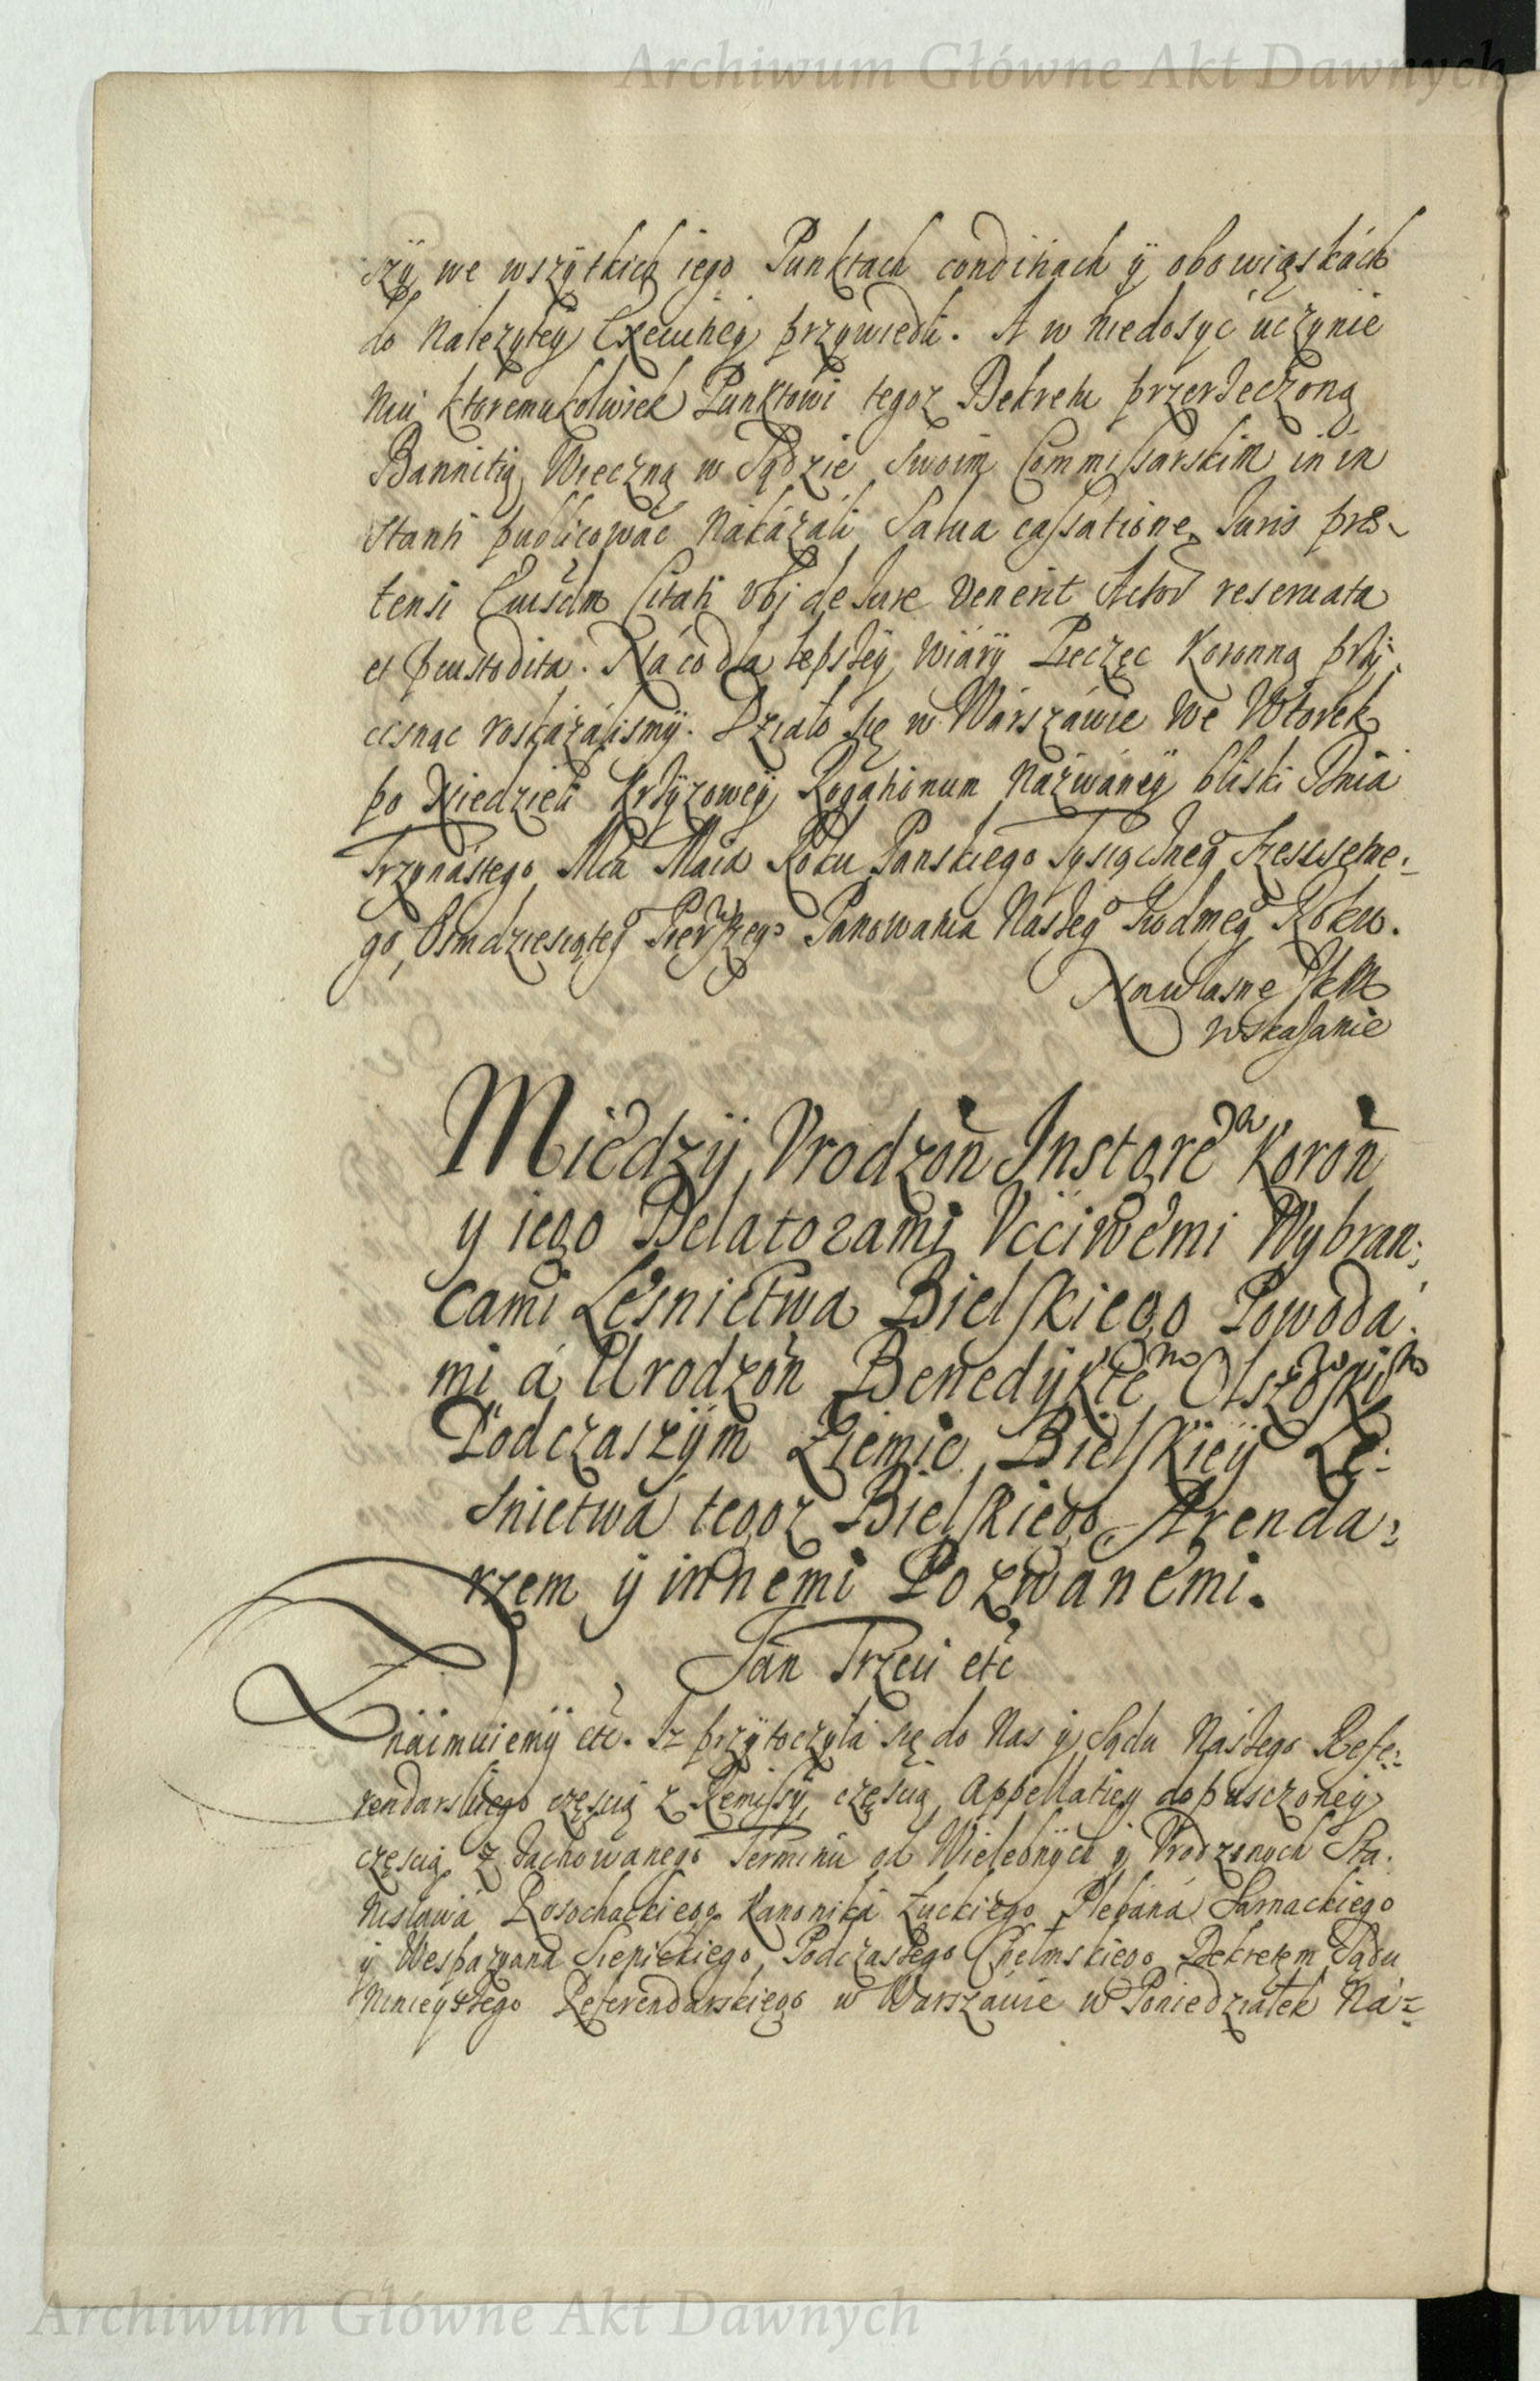 Archiwum Główne Akt Dawnych
szy we wszytkich iego Punktach conditiach y obowiąskach
do należytey Executiey przywiedli. A w niedosyć uczynie
niu ktoremukolwiek Punktowi tegoz Dekretu przerzeczoną
Bannitią Wieczną w Sądzie Swoim Commissarskim in in
stanti publicować nakazali Salua cassatione Juris præ-
tensi Citati vbi de Jure venerit Actori reseruata
et pcustodita. Na co dla lepszey wiary Pieczęc Koronną przy
cisnąc roskazalismy. Działo się w Warszawie we Wtorek
po Niedzieli Krzyzowey Rogationum nazwaney bliski Dnia
Trzynastego Mca Maia Roku Panskiego Tysiącnego Szescsetne-
go, Osmdziesiątego Pierwszego Panowania Naszego Siodmego Roku.
Na własne JKM
wskazanie
Miedzy Vrodzon̄ Instgrem Koron̄
y iego Delatorami Vcciwemi Wybran-
cami Leśnictwa Bielskiego Powoda
mi á Urodzon̄ Benedyktem Olszewskim
Podczaszym Ziemie Bielskiey Le-
snictwa tegoz Bielskiego Arenda-
rzem y innemi Pozwanemi.
Jan Trzeci etc
Znaimuiemy etc. Iz przytoczyła się do Nas y Sądu Naszego Refe-
rendarskiego częscią z Remissy, częscią Appellatiey dopusczoney
częscią z zachowanego Terminu od Wielebnych y Vrodzonych Sta-
nisława Rosochackiego Kanonika Łuckiego Plebana Sarnackiego
y Wespazyana Siepickiego Podczaszego Chełmskiego Dekretem Sądu
Ninieyszego Referendarskiego w Warszawie w Poniedziałek Na-
Archiwum Główne Akt Dawnych